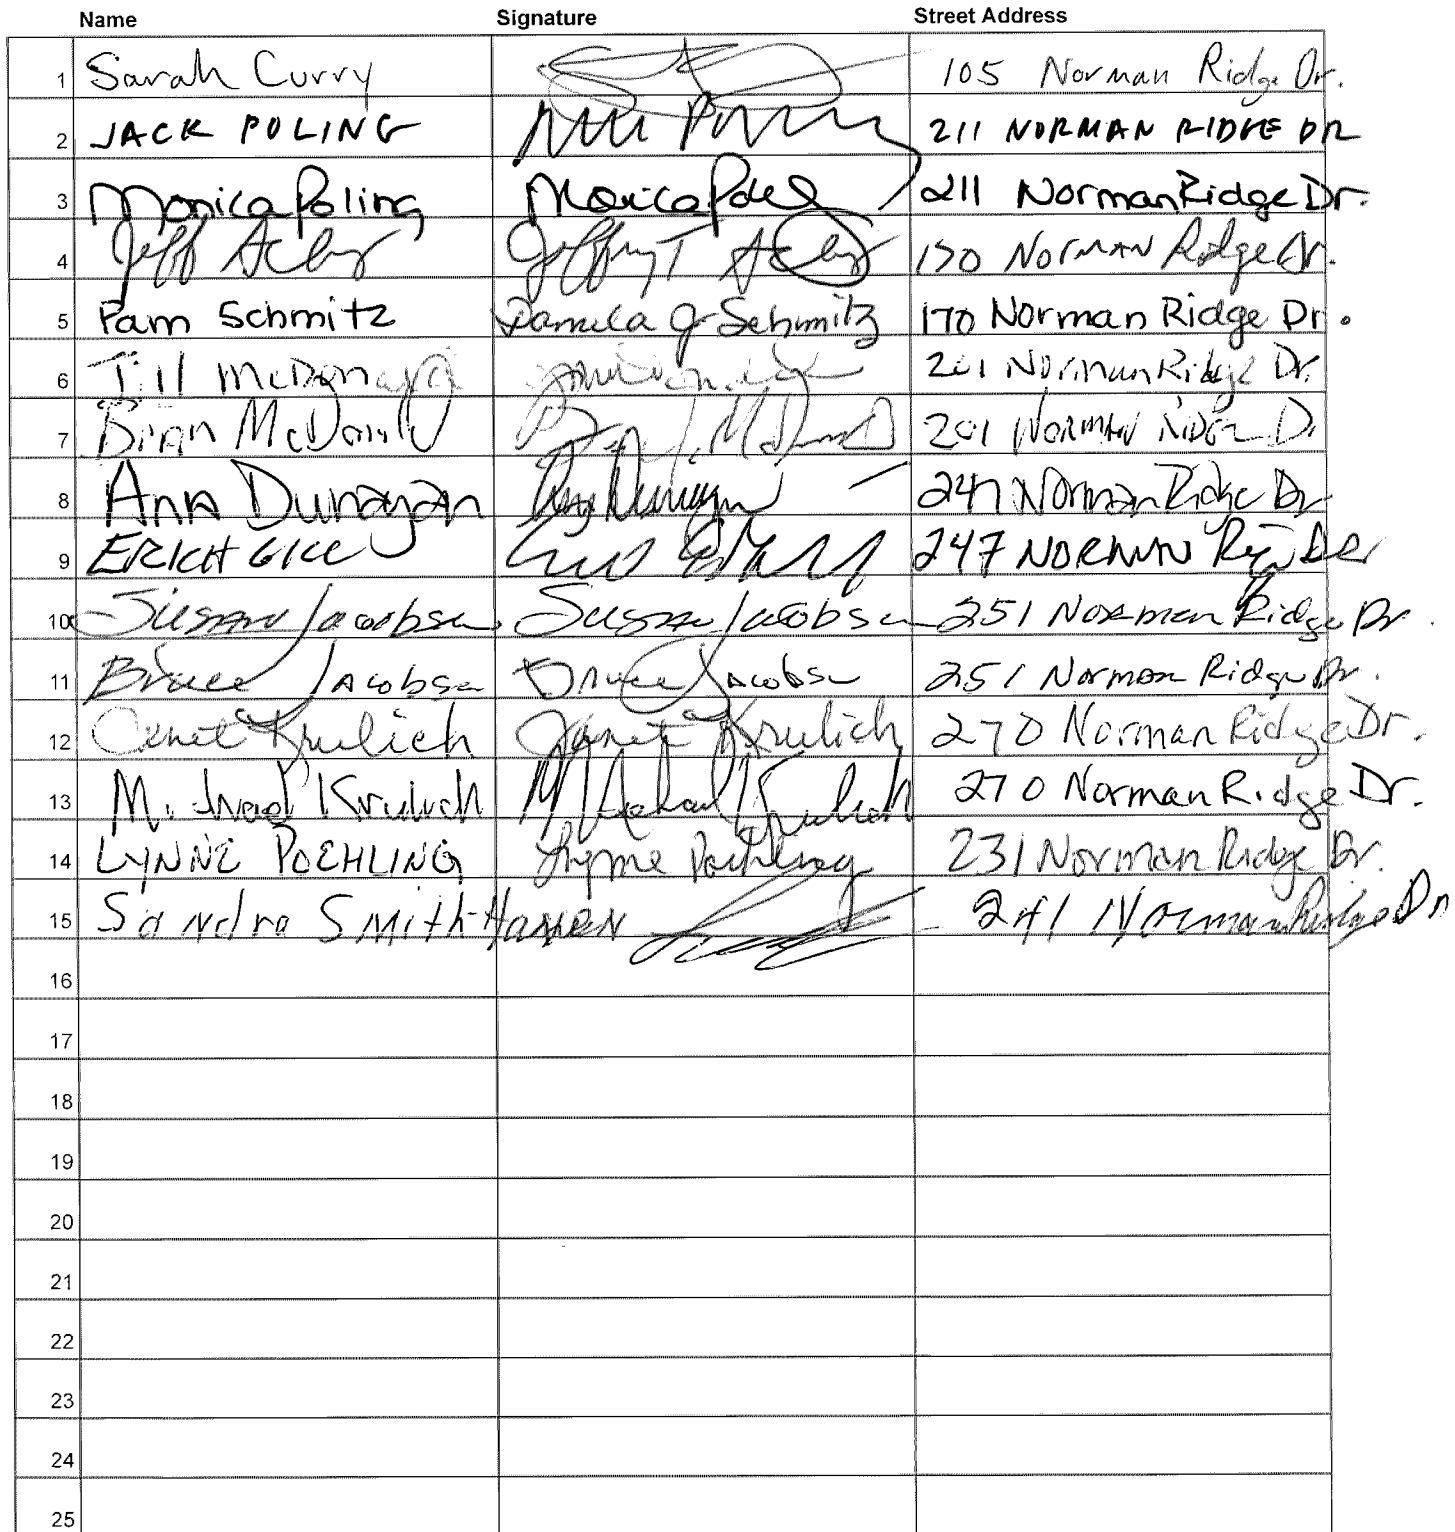 Name Signature Street Address
1 Sarah Curry 105 Norman Ridge Dr.
2 JACK POLING 211 NORMAN RIDGE DR
3 Monica Poling Monica Poling 211 Norman Ridge Dr.
4 Jeff Jeffrey T Norman Ridge Dr.
5 Pam Schmitz Pamela J Schmitz 170 Norman Ridge Dr.
6 Jill McDonald 201 Norman Ridge Dr.
7 Brian McDonald Brian J. McDonald 201 NORMAN RIDGE Dr
8 Ann Dunagan Ann Dunagan 247 Norman Ridge Dr
9 ERICH 247 NORMAN Dr
10 Susan Jacobsen Susan Jacobsen 251 Norman Ridge Dr.
11 Bruce Jacobsen Bruce Jacobsen 251 Norman Ridge Dr.
12 Janet Krulich Janet Krulich 270 Norman Ridge Dr.
13 Michael Krulich Michael Krulich 270 Norman Ridge Dr.
14 LYNNE POEHLING Lynne Poehling 231 Norman Ridge Dr.
15 Sandra Smith-Hansen 241 Norman Ridge Dr
16
17
18
19
20
21
22
23
24
25